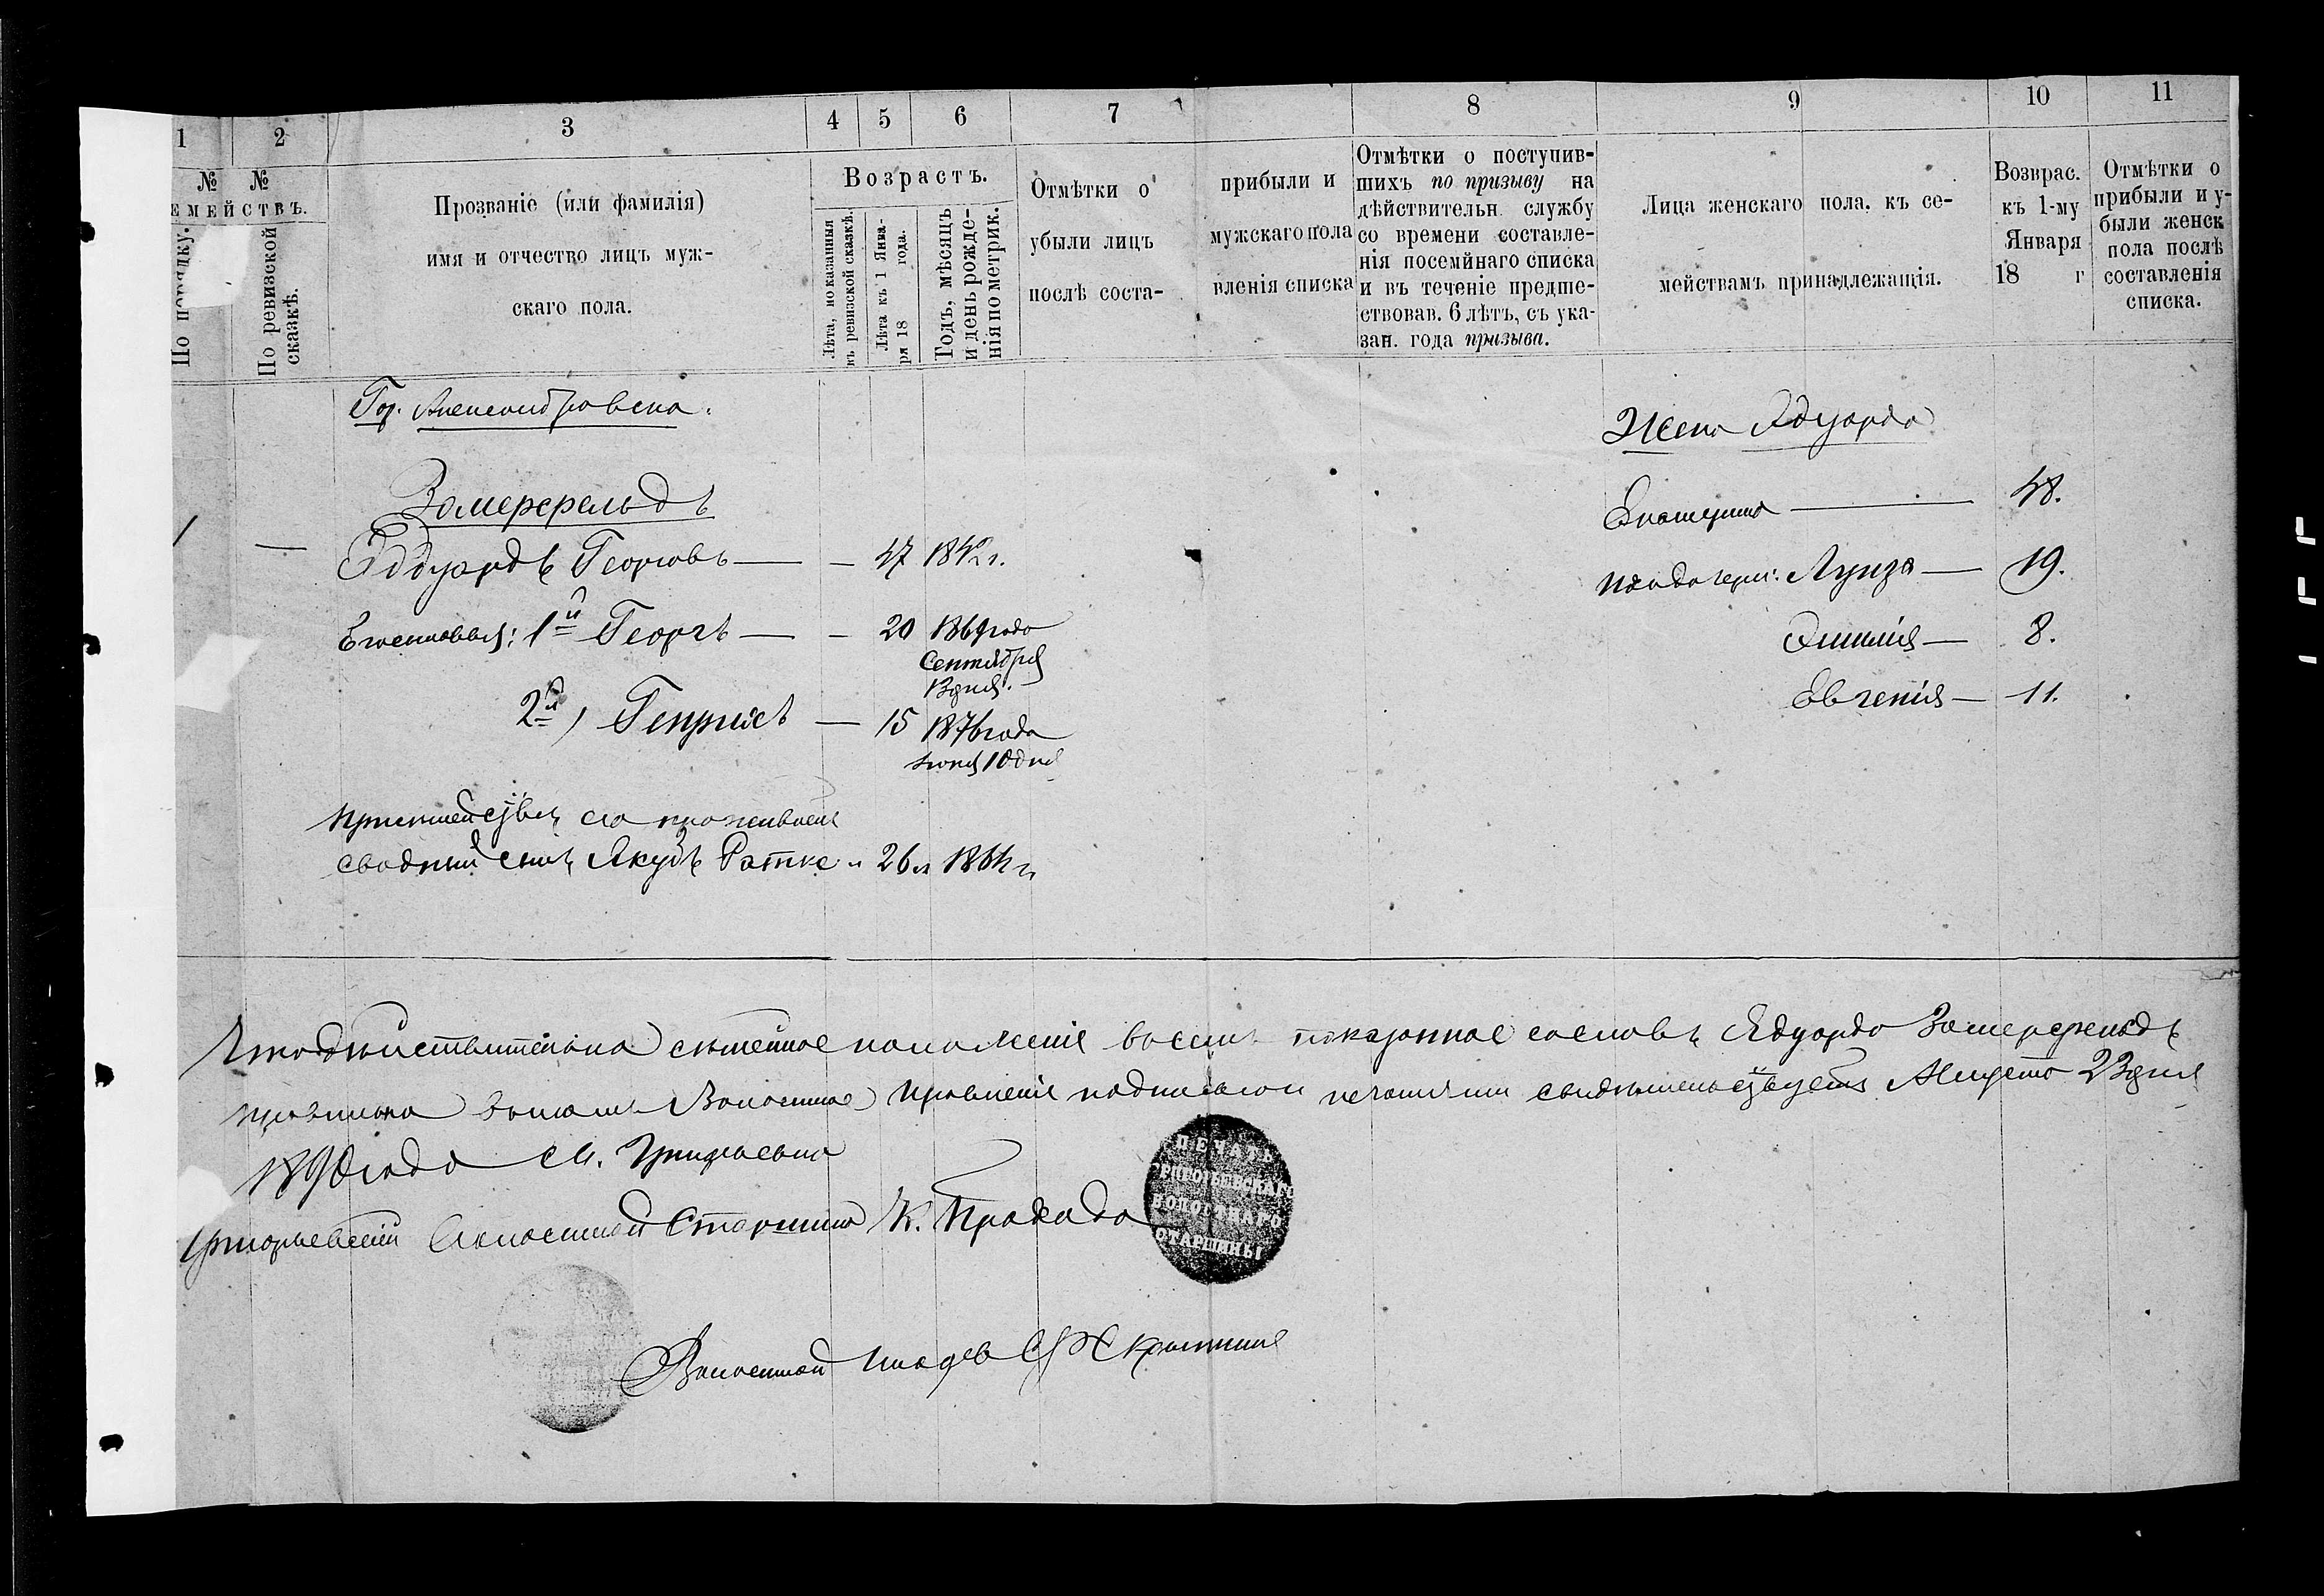 1 2 3 4 5 6 7 8 9 10 11
№ № ЕМЕЙСТВЪ.
По порядку.
По ревизской сказкѣ.
Прозваніе (или фамилія)
имя и отчество лицъ муж-
скаго пола.
Возрастъ.
Лѣта, показанныя
въ ревизской сказкѣ.
Лѣта къ 1 Янва-
ря 18 года.
Годъ, мѣсяцъ
и день рожде-
нія по метрик.
Отмѣтки о прибыли и
убыли лицъ мужскаго пола
послѣ соста- вленія списка
Отмѣтки о поступив-
шихъ по призыву на
дѣйствительн. службу
со времени составле-
нія посемйнаго списка
и въ теченіе предше-
ствовав. 6 лѣтъ, съ ука-
зан. года призыва.
Лица женскаго пола, къ се-
мействамъ принадлежащія.
Возврас.
къ 1-му
Января
18 г
Отмѣтки о
прибыли и у-
были женск
пола послѣ
составленія
списка.
Гор. Александровска.
Жена Эдуарда
Зомерфельдъ
Екатерина — 48.
1 — Эдуардъ Георговъ — — 47 1842 г.
Луиза — 19.
Его сыновья: 1й Георгъ — — 20 1869 года
Сентября
13 дня.
Эмилія — 8.
Евгенія — 11.
2й, Генрихъ — 15 1876 года
10 дня
сводный сынъ Якубъ Ратке " 26 л 1864 г.
Что дѣйствительно семейное положеніе показанное Эдуарда Зомерфельдъ
правильно Волостное Правленіе подписью и печатями свидѣтельствуетъ Августа 23 дня
1890 года
Григорьевский Волостной Старшина К.
ПЕЧАТЬ
ГРИГОРЬЕВСКАГО
ВОЛОСТНАГО
СТАРШИНЫ
Волостной Писарь